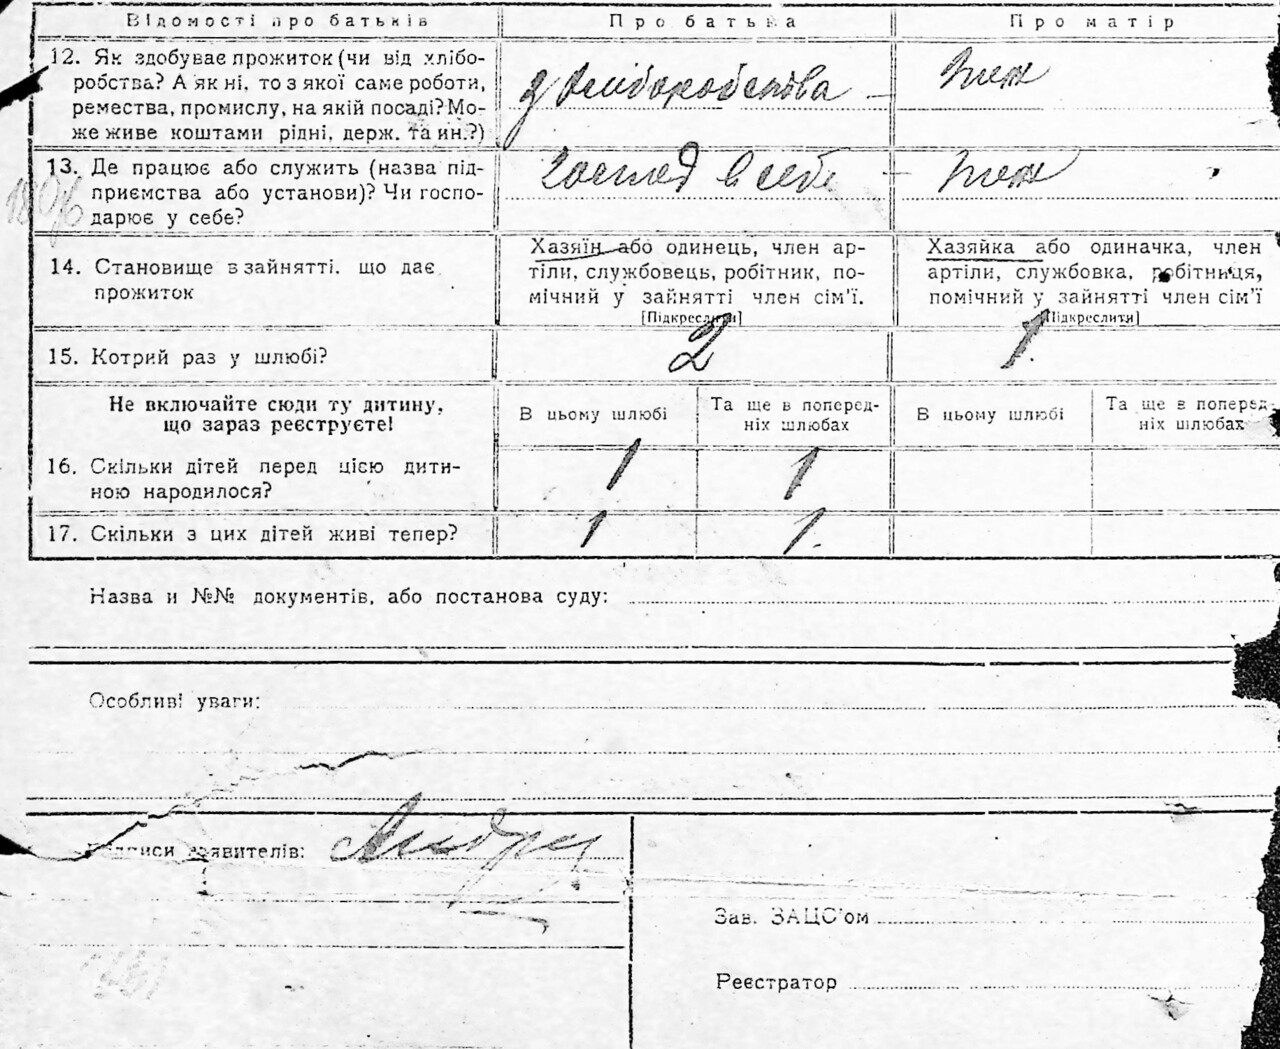 Відомості про батьків
Про батька
Про матір
12. Як здобуває прожиток (чи від хлібо-
робства? А як ні, то з якої саме роботи,
ремества, промислу, на якій посаді? Мо-
же живе коштами рідні, держ. та ин.?)
з хліборобства
теж
13. Де працює або служить (назва під-
приємства або установи)? Чи госпо-
дарює у себе?
в себе
теж
14. Становище в зайнятті, що дає
прожиток
Хазяїн або одинець, член ар-
тіли, службовець, робітник, по-
мічний у зайнятті член сім'ї.
[Підкреслити]
Хазяйка або одиначка, член
артіли, службовка, робітниця,
помічний у зайнятті член сім'ї
[Підкреслити]
15. Котрий раз у шлюбі?
2
1.
Не включайте сюди ту дитину,
що зараз реєструєте!
В цьому шлюбі
Та ще в поперед-
ніх шлюбах
В цьому шлюбі
Та ще в поперед-
ніх шлюбах
16. Скільки дітей перед цією дити-
ною народилося?
1
1
17. Скільки з цих дітей живі тепер?
1
1.
Назва и №№ документів, або постанова суду:
Особливі уваги:
Підписи заявителів:
Зав. ЗАЦС'ом
Реєстратор